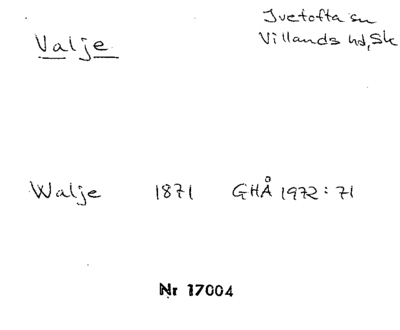 Valje
Ivetofta sn
Villands hd, Sk
Walje 1871 GHÅ 1972:71
Nr 17004